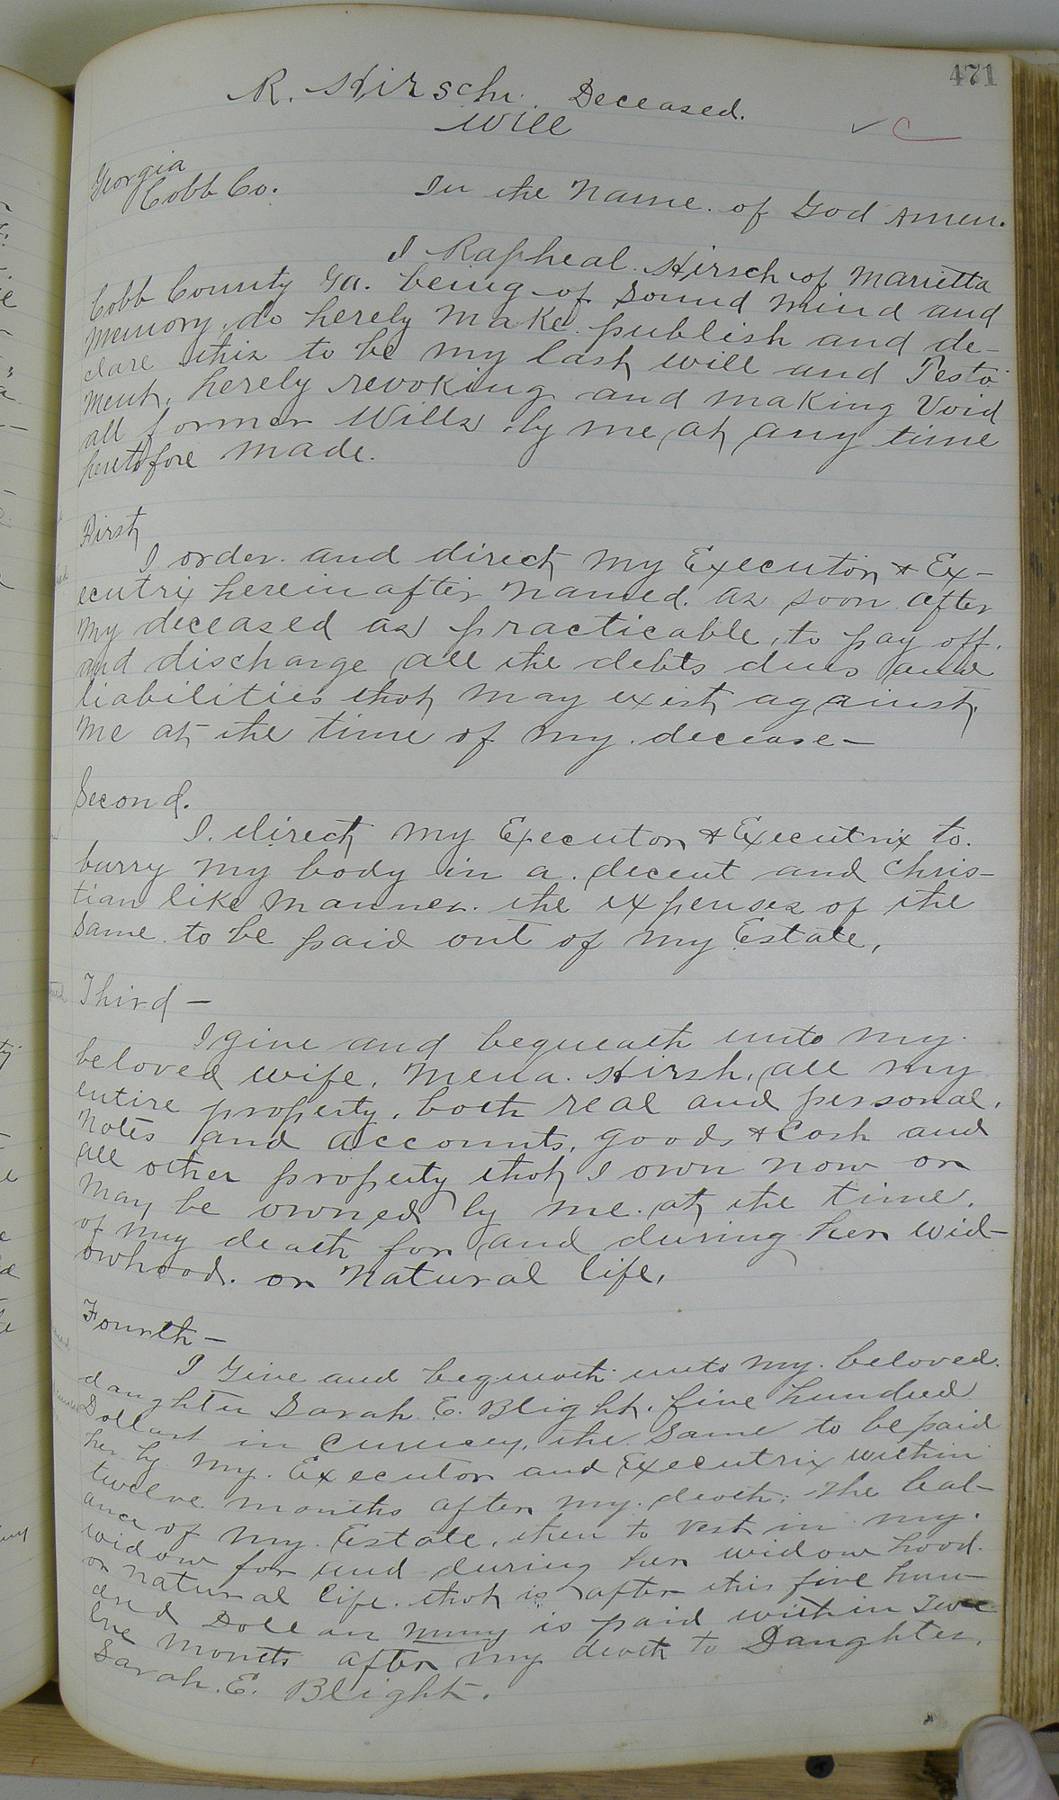 471
R. Hirsch. Deceased.
Will
Georgia
Cobb Co.
In the Name of God Amen.
I Rapheal Hirsch of Marietta
Cobb County Ga. being of Sound Mind and
Memory, do herely Make publish and de-
clare this to be my last will and Testa
ment, herely revoking and making Void
all former Wills by me at any time
heretofore made.
First
I order and direct My Executor & Ex-
ecutrix hereinafter Named. as soon after
My deceased as practicable, to pay off.
and discharge all the debts dues and
liabilities that may exist against,
Me at the time of my decease-
Second.
I. direct my Executor & Executrix to.
burry my body in a decent and Chris-
tian like Manner. the expenses of the
Same to be paid out of my Estate,
Third -
I give and bequeath unto my
beloved wife, Mena. Hirsh, all my
entire property, both real and personal,
Notes and accounts, goods & Cash and
all other property that I own now or
May be owned by me at the time,
of my death for and during her wid-
owhood. or Natural life,
Fourth -
I Give and bequeath unto my beloved
daughter Sarah E. Blight, five hundred
Dollars in Currency, the Same to be paid
her by my Executor and Executrix within
twelve months after my death: The bal-
ance of my Estate, then to vest in my
widow for and during her widow hood.
or natural life. that is after this five hun-
dred Dollar money is paid within Twe
lve Months after my death to Daughter,
Sarah. E. Blight.